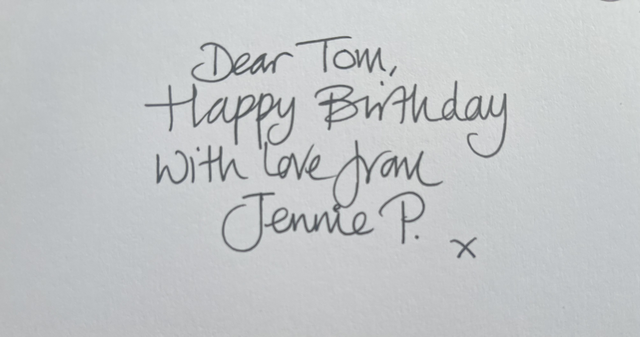 Dear Tom,
Happy Birthday
With love from
Jennie P.
x